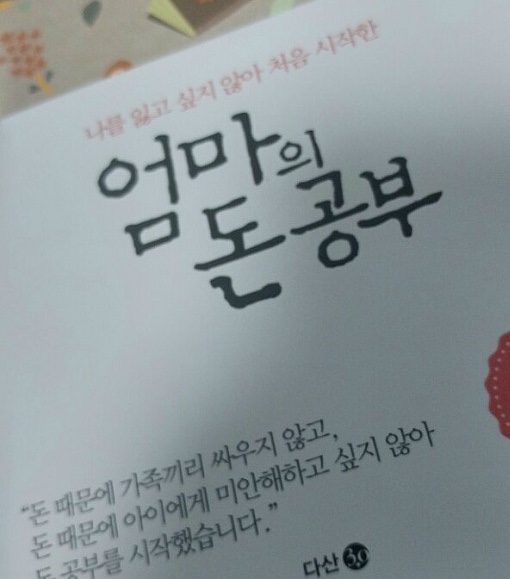 나를 잃고 싶지 않아 처음 시작한
엄마의
돈 공부
"돈 때문에 가족끼리 싸우지 않고,
돈 때문에 아이에게 미안해하고 싶지 않아
돈 공부를 시작했습니다."
다산 3.0